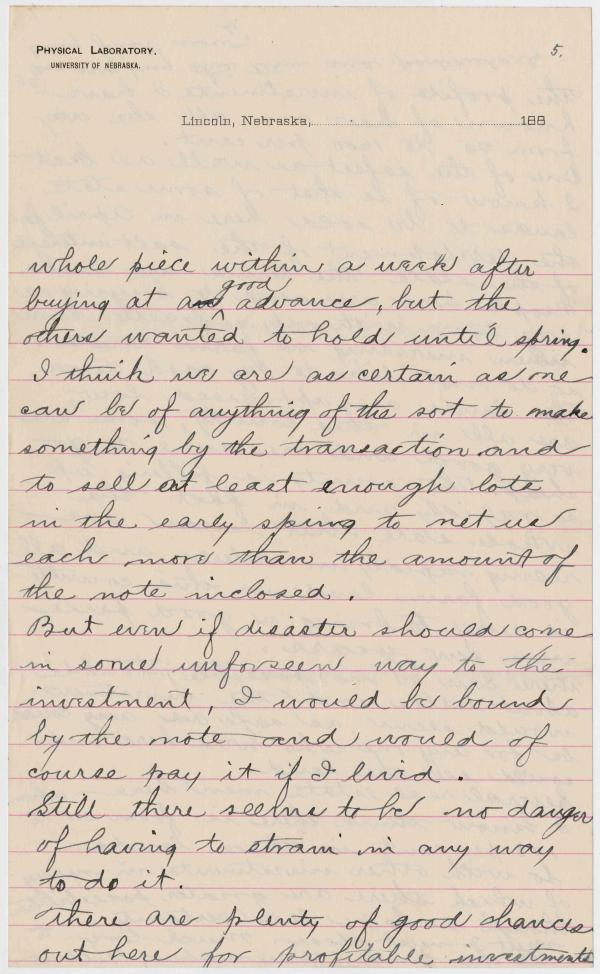 5.
PHYSICAL LABORATORY,
UNIVERSITY OF NEBRASKA.
Lincoln, Nebraska, 188
whole piece within a week after
buying at an good advance, but the
others wanted to hold until spring.
I think we are as certain as one
can be of anything of the sort to make
something by the transaction and
to sell at least enough lots
in the early spring to net us
each more than the amount of
the note inclosed.
But even if disaster should come
in some unforseen way to the
investment, I would be bound
by the note and would of
course pay it if I livid.
Still there seems to be no danger
of having to strain in any way
to do it.
There are plenty of good chances
out here for profitable investments